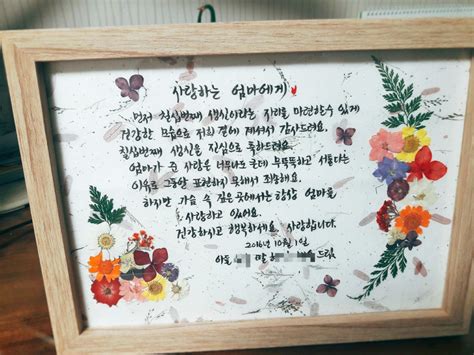 사랑하는 엄마에게
먼저 칠십번째 생신이라는 자리를 마련할수 있게
건강한 모습으로 저희 곁에 계셔서 감사드려요.
칠십번째 생신을 진심으로 축하드려요.
엄마가 준 사랑은 너무나도 큰데 무뚝뚝하고 서툴다는
이유로 그동안 표현하지 못해서 죄송해요.
하지만 가슴 속 깊은곳에서는 항상 엄마를
사랑하고 있어요.
건강하시고 행복하세요. 사랑합니다.
2016년 10월 1일
아들 딸 드림